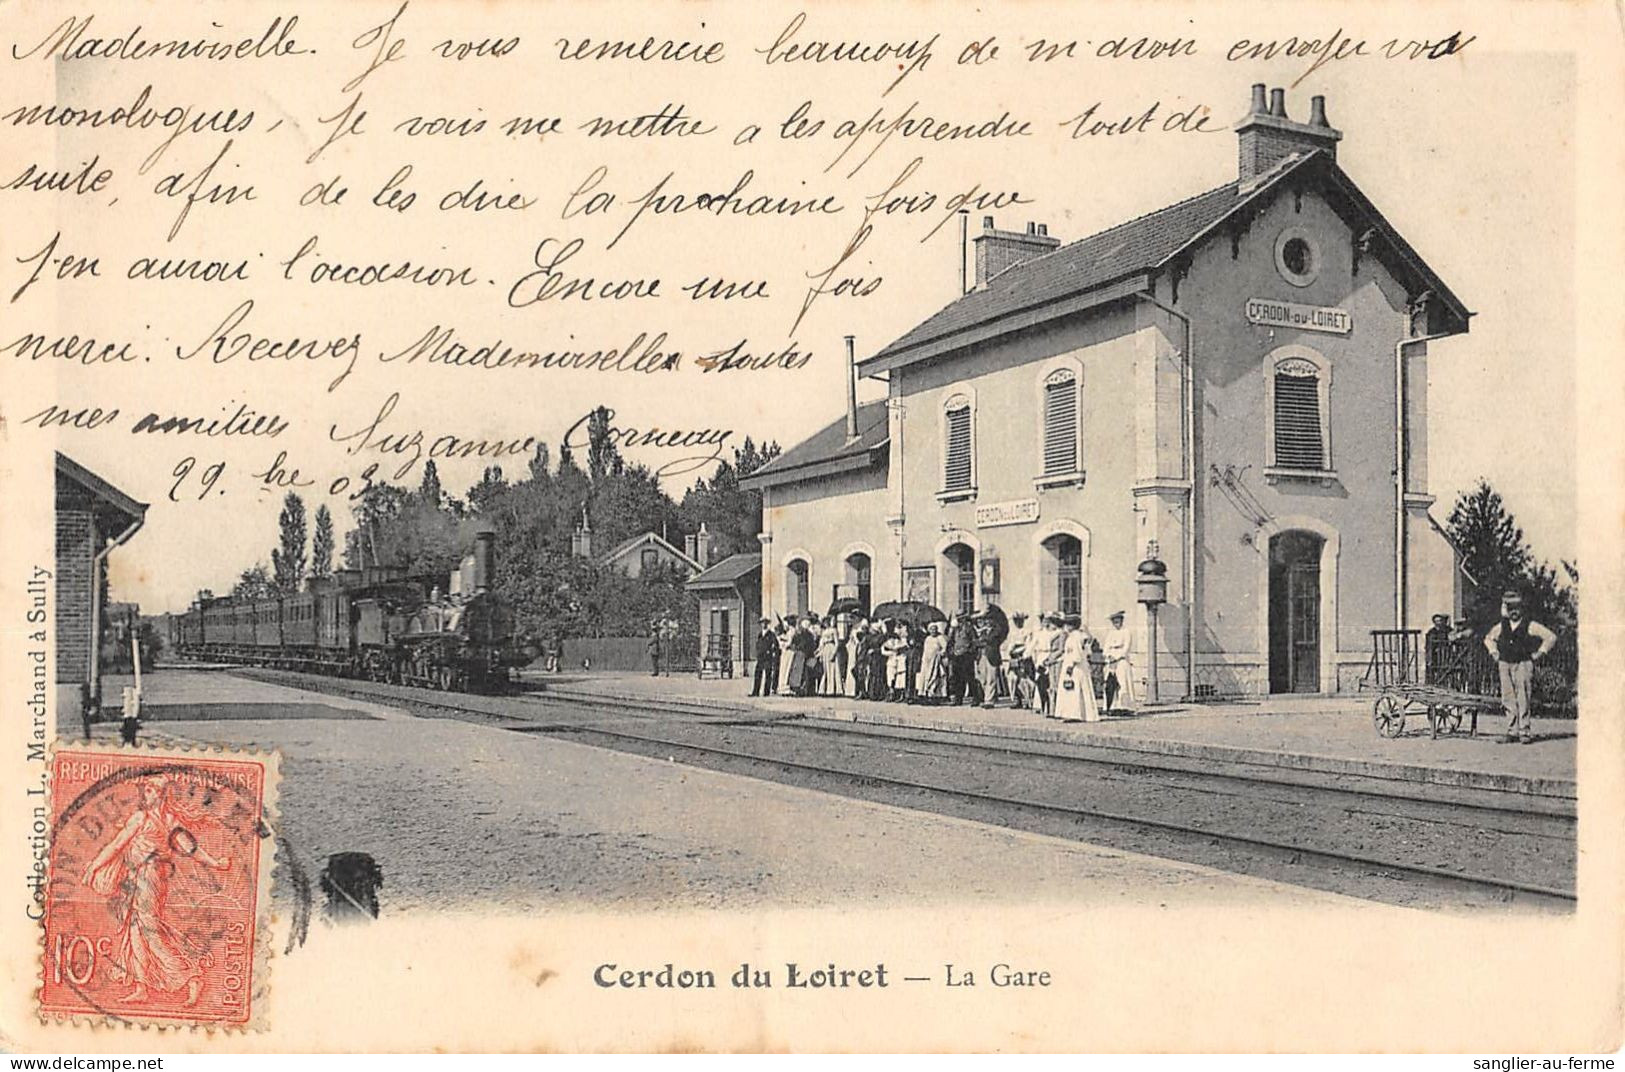 Mademoiselle. Je vous remercie beaucoup de m'avoir envoyer vos
monologues, je vais me mettre a les apprendre tout de
suite, afin de les dire la prochaine fois que
j'en aurai l'occasion. Encore une fois
merci. Recevez Mademoiselle toutes
mes amitiées Suzanne Corneau
29. bre 03
CERDON-DU-LOIRET
CERDON DU LOIRET
Collection L. Marchand à Sully
REPUBLIQUE FRANÇAISE
30
10c
POSTES
Cerdon du Loiret — La Gare
sanglier-au-ferme